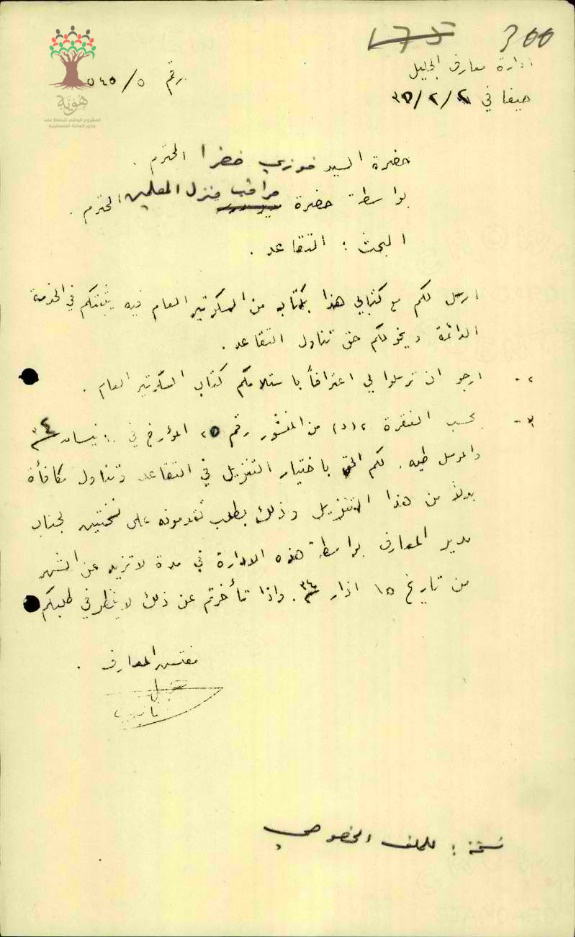 300
175
ادارة معارف الجليل
رقم ٥٤٥/٥
حيفا في ٣٥/٢/٢
هوية
حضرة السيد فوزي خضرا المحترم .
بواسطة حضرة مراقب منزل المعلمين المحترم .
البحث : التقاعد .
ارسل لكم مع كتابي هذا كتاب من السكرتير العام فيه يثبتكم في الخدمة
الدائمة ويخولكم حق تناول التقاعد .
٢- ارجو ان ترسلوا لي اعترافاً باستلامكم كتاب السكرتير العام .
٣- بحسب الفقرة ٢(د) من المنشور رقم ٢٥ المؤرخ في نيسان ٣٤
والمرسل طيه . لكم الحق باختيار التنزيل في التقاعد وتناول مكافأة
بدلاً من هذا التنزيل وذلك بطلب تقدمونه على نسختين لجناب
مدير المعارف بواسطة هذه الادارة في مدة لا تزيد عن الشهر
من تاريخ ١٥ اذار . واذا تأخرتم عن ذلك لا ينظر في طلبكم
مفتش المعارف .
نسخة : للملف الخصوصي